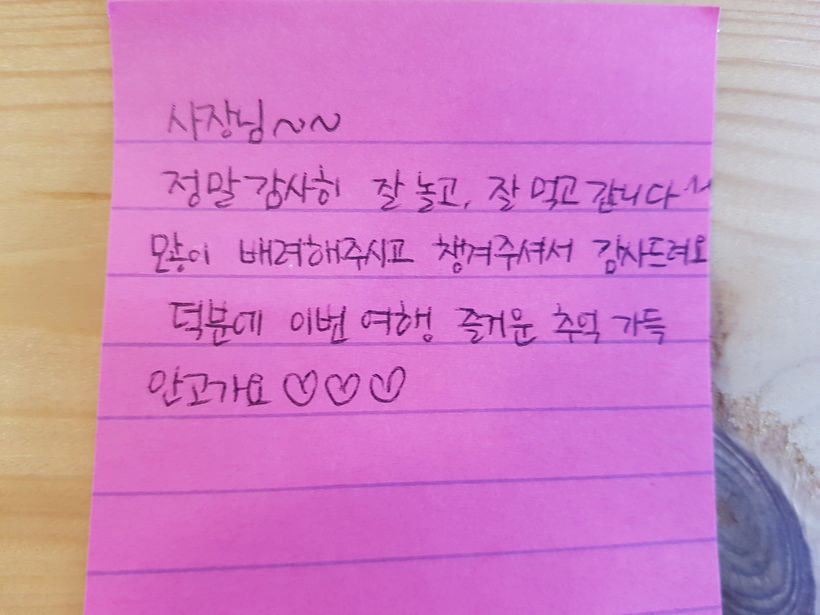 사장님~~
정말 감사히 잘 놀고, 잘 먹고 갑니다~
많이 배려해주시고 챙겨주셔서 감사드려요
덕분에 이번 여행 즐거운 추억 가득
안고가요 ♡♡♡